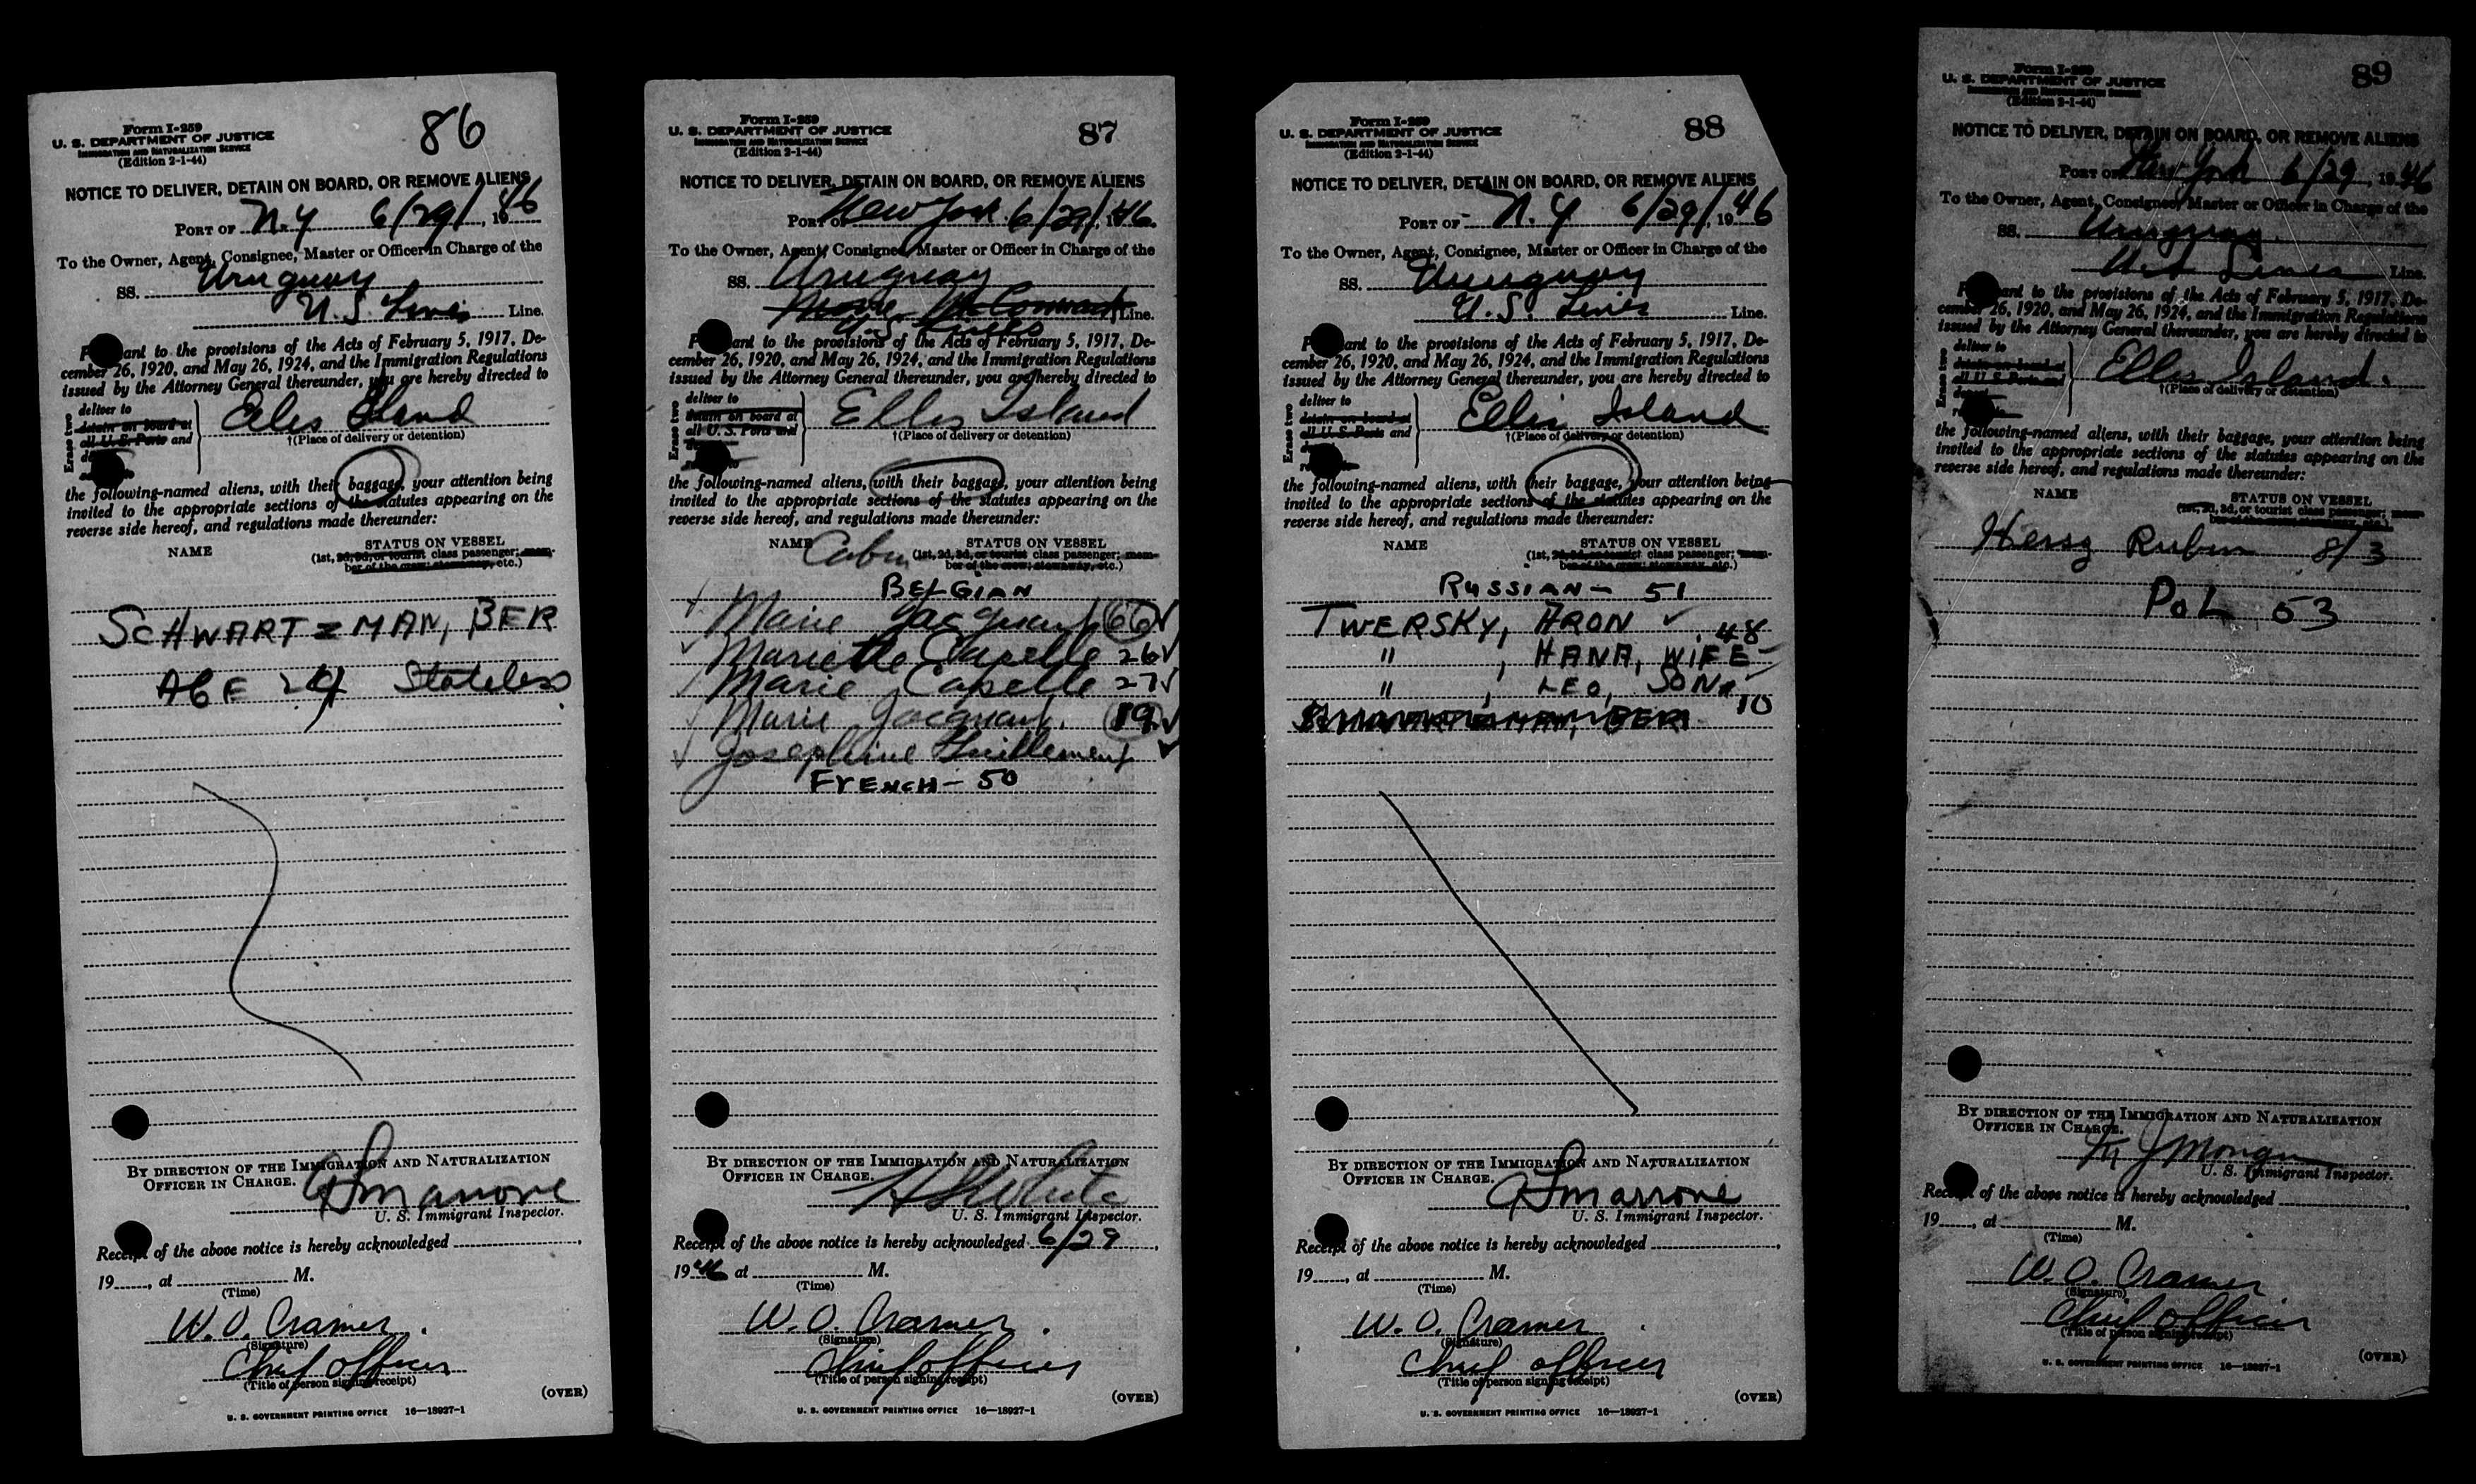 86
Form I-259
U. S. DEPARTMENT OF JUSTICE
IMMIGRATION AND NATURALIZATION SERVICE
(Edition 2-1-44)
NOTICE TO DELIVER, DETAIN ON BOARD, OR REMOVE ALIENS
PORT OF N.Y 6/29/, 1946
To the Owner, Agent, Consignee, Master or Officer in Charge of the
SS. Uruguay
U.S. Lines Line.
ant to the provisions of the Acts of February 5, 1917, De-
cember 26, 1920, and May 26, 1924, and the Immigration Regulations
issued by the Attorney General thereunder, you are hereby directed to
Erase two
deliver to
detain on board at
all U. S. Ports and
Ellis Island
†(Place of delivery or detention)
the following-named aliens, with their baggage, your attention being
invited to the appropriate sections of the statutes appearing on the
reverse side hereof, and regulations made thereunder:
NAME
STATUS ON VESSEL
(1st, 2d, 3d, or tourist class passenger; mem-
ber of the crew; stowaway, etc.)
SCHWARTZMAN, BER
AGE 24 Stateless
BY DIRECTION OF THE IMMIGRATION AND NATURALIZATION
OFFICER IN CHARGE.
U. S. Immigrant Inspector.
Receipt of the above notice is hereby acknowledged
19, at M.
(Time)
W. O. Cramer
(Signature)
Chief officer
(Title of person signing receipt)
(OVER)
U. S. GOVERNMENT PRINTING OFFICE 16—18927-1
87
Form I-259
U. S. DEPARTMENT OF JUSTICE
IMMIGRATION AND NATURALIZATION SERVICE
(Edition 2-1-44)
NOTICE TO DELIVER, DETAIN ON BOARD, OR REMOVE ALIENS
PORT OF New York 6/29/, 1946.
To the Owner, Agent, Consignee, Master or Officer in Charge of the
SS. Uruguay
Line.
U.S. Lines
ant to the provisions of the Acts of February 5, 1917, De-
cember 26, 1920, and May 26, 1924, and the Immigration Regulations
issued by the Attorney General thereunder, you are hereby directed to
Erase two
deliver to
detain on board at
all U. S. Ports and
Ellis Island
†(Place of delivery or detention)
the following-named aliens, with their baggage, your attention being
invited to the appropriate sections of the statutes appearing on the
reverse side hereof, and regulations made thereunder:
NAME
Cabin
STATUS ON VESSEL
(1st, 2d, 3d, or tourist class passenger; mem-
ber of the crew; stowaway, etc.)
BELGIAN
Marie Jacquart 66
Mariette Capelle 26
Marie Capelle 27
Marie Jacquart 19
Josephine
FRENCH - 50
BY DIRECTION OF THE IMMIGRATION AND NATURALIZATION
OFFICER IN CHARGE.
White
U. S. Immigrant Inspector.
Receipt of the above notice is hereby acknowledged 6/29,
1946 at M.
(Time)
W. O. Cramer
(Signature)
Chief officer
(Title of person signing receipt)
(OVER)
U. S. GOVERNMENT PRINTING OFFICE 16—18927-1
88
Form I-259
U. S. DEPARTMENT OF JUSTICE
IMMIGRATION AND NATURALIZATION SERVICE
(Edition 2-1-44)
NOTICE TO DELIVER, DETAIN ON BOARD, OR REMOVE ALIENS
PORT OF N.Y 6/29/, 1946
To the Owner, Agent, Consignee, Master or Officer in Charge of the
SS. Uruguay
U.S. Lines Line.
ant to the provisions of the Acts of February 5, 1917, De-
cember 26, 1920, and May 26, 1924, and the Immigration Regulations
issued by the Attorney General thereunder, you are hereby directed to
Erase two
deliver to
detain on board at
all U. S. Ports and
Ellis Island
†(Place of delivery or detention)
the following-named aliens, with their baggage, your attention being
invited to the appropriate sections of the statutes appearing on the
reverse side hereof, and regulations made thereunder:
NAME
STATUS ON VESSEL
(1st, 2d, 3d, or tourist class passenger; mem-
ber of the crew; stowaway, etc.)
RUSSIAN - 51
TWERSKY, ARON
" , HANA, WIFE 48
" , LEO, SON 10
SCHWARTZMAN, BER
BY DIRECTION OF THE IMMIGRATION AND NATURALIZATION
OFFICER IN CHARGE.
U. S. Immigrant Inspector.
Receipt of the above notice is hereby acknowledged
19, at M.
(Time)
W. O. Cramer
(Signature)
Chief officer
(Title of person signing receipt)
(OVER)
U. S. GOVERNMENT PRINTING OFFICE 16—18927-1
89
Form I-259
U. S. DEPARTMENT OF JUSTICE
IMMIGRATION AND NATURALIZATION SERVICE
(Edition 2-1-44)
NOTICE TO DELIVER, DETAIN ON BOARD, OR REMOVE ALIENS
PORT OF New York 6/29, 1946
To the Owner, Agent, Consignee, Master or Officer in Charge of the
SS. Uruguay
Lines Line.
ant to the provisions of the Acts of February 5, 1917, De-
cember 26, 1920, and May 26, 1924, and the Immigration Regulations
issued by the Attorney General thereunder, you are hereby directed to
Erase two
deliver to
detain on board at
all U. S. Ports and
Ellis Island.
†(Place of delivery or detention)
the following-named aliens, with their baggage, your attention being
invited to the appropriate sections of the statutes appearing on the
reverse side hereof, and regulations made thereunder:
NAME
STATUS ON VESSEL
(1st, 2d, 3d, or tourist class passenger; mem-
ber of the crew; stowaway, etc.)
Hersz Rubin 8/3
POL 53
BY DIRECTION OF THE IMMIGRATION AND NATURALIZATION
OFFICER IN CHARGE.
U. S. Immigrant Inspector.
Receipt of the above notice is hereby acknowledged
19, at M.
(Time)
W. O. Cramer
(Signature)
Chief officer
(Title of person signing receipt)
(OVER)
U. S. GOVERNMENT PRINTING OFFICE 16—18927-1